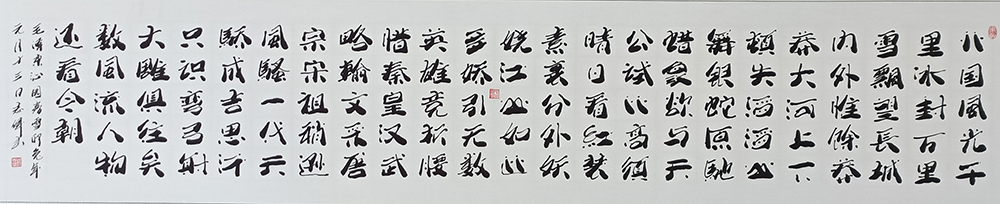 北国风光千
里冰封万里
雪飘望长城
内外惟馀莽
莽大河上下
顿失滔滔山
舞银蛇原驰
蜡象欲与天
公试比高须
晴日看红装
素裹分外妖
娆江山如此
多娇引无数
英雄竞折腰
惜秦皇汉武
略输文采唐
宗宋祖稍逊
风骚一代天
骄成吉思汗
只识弯弓射
大雕俱往矣
数风流人物
还看今朝
毛泽东沁园春雪
元月十三日